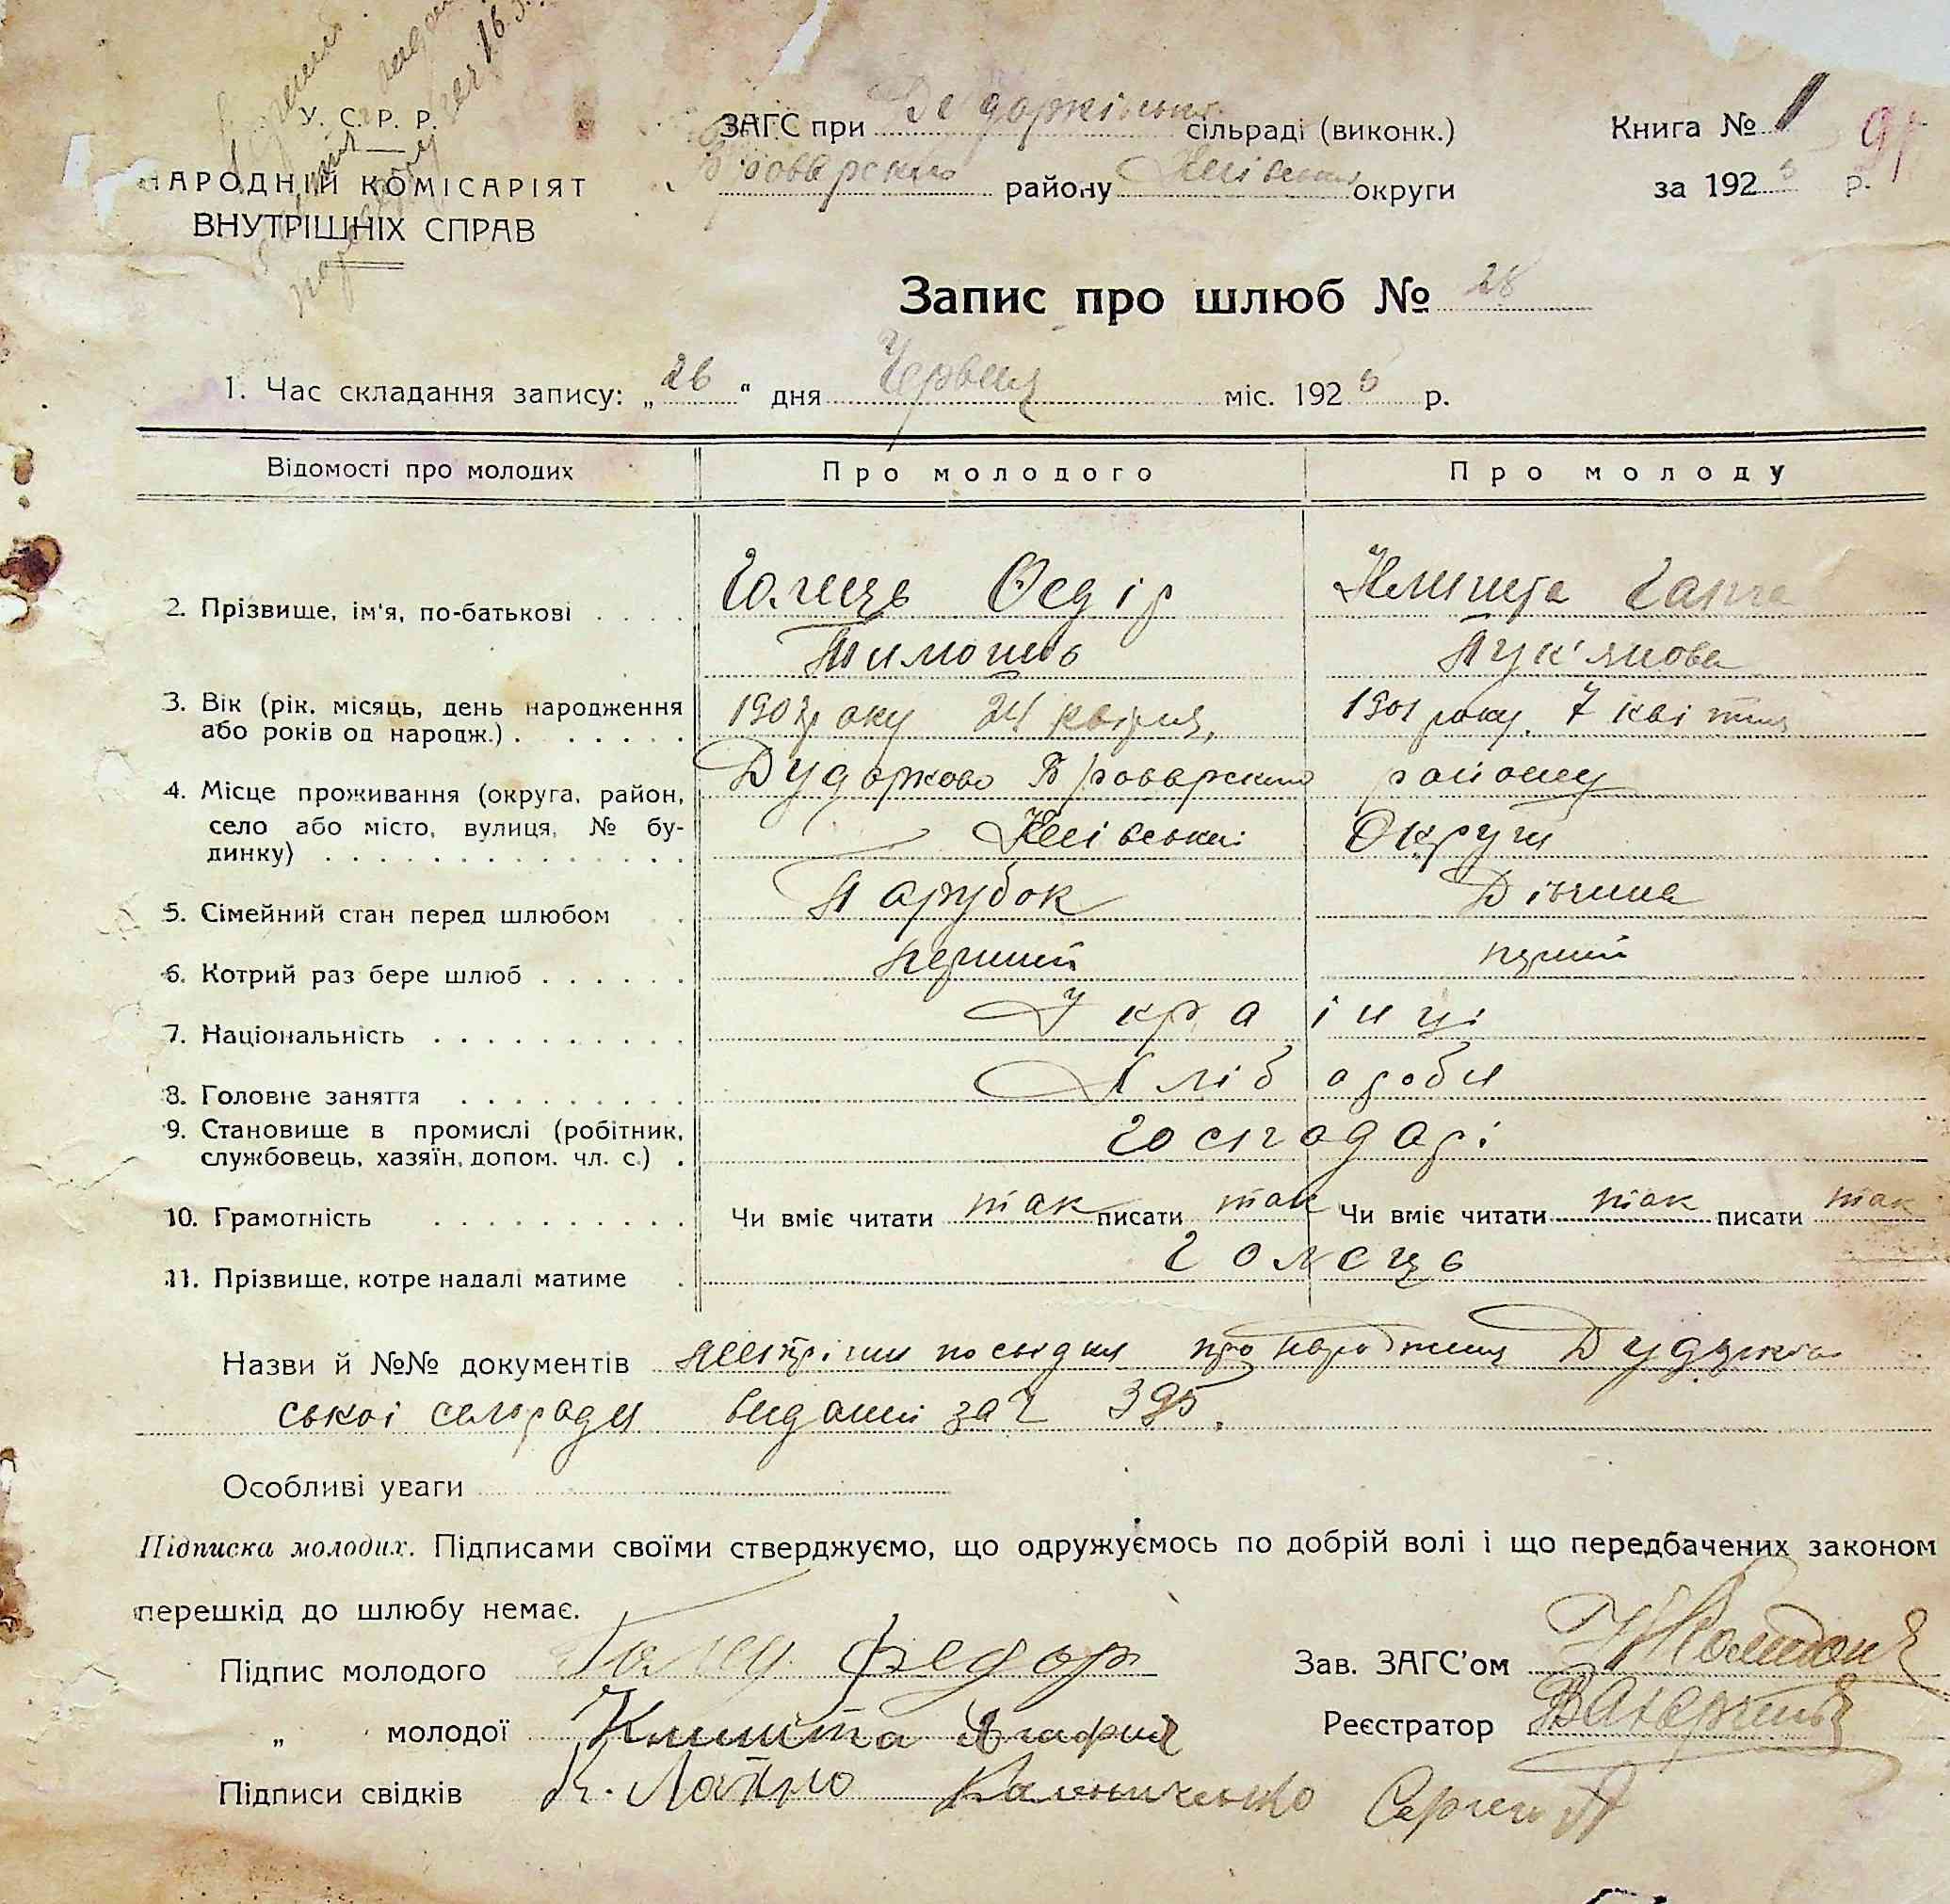 У. С. Р. Р.
НАРОДНІЙ КОМІСАРІЯТ
ВНУТРІШНІХ СПРАВ
ЗАГС при сільраді (виконк.)
Броварского району Київської округи
Книга № 1
за 192 р.
Запис про шлюб № 28
1. Час складання запису: „26“ дня Червня міс. 192 р.
Відомості про молодих Про молодого Про молоду
2. Прізвище, ім'я, по-батькові Голець Федір Клишта Гапка
Тимошів Лук'янова
3. Вік (рік. місяць, день народження або років од народж.) 24 квітня, 1901 року. 7 квітня
4. Місце проживання (округа, район, село або місто, вулиця, № будинку) Дударково Броварского району
Київської Округи
5. Сімейний стан перед шлюбом Парубок Дівчина
6. Котрий раз бере шлюб перший перший
7. Національність Українці
8. Головне заняття Хлібороби
9. Становище в промислі (робітник, службовець, хазяїн, допом. чл. с.) Господарі
10. Грамотність Чи вміє читати так писати так Чи вміє читати так писати так
11. Прізвище, котре надалі матиме Голець
Назви й №№ документів посвідки про народження Дударків
ської сельради видані за ч 395.
Особливі уваги
Підписка молодих. Підписами своїми стверджуємо, що одружуємось по добрій волі і що передбачених законом
перешкід до шлюбу немає.
Підпис молодого Голец Федор
Зав. ЗАГС'ом
„ молодої Клишта Агафия
Реєстратор
Підписи свідків Калениченко Сергей